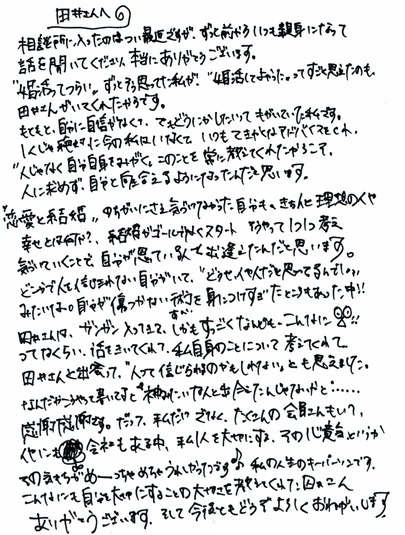 田井さんへ
相談所に入ったのはつい最近ですが、ずっと前からいつも親身になって
話を聞いてくださり、本当にありがとうございます。
"婚活ってつらい"ずっとそう思ってた私が、"婚活してよかった"ってずっと思えたのも、
田井さんがいてくれたからです。
もともと、自分に自信がなくて、でもどうにかしたいって もがいていた私です。
今の私はいなくて いつも アドバイスをくれ、
"人じゃなく自分自身をみがく"、このことを常に教えてくれたからこそ、
人に求めず、自分と向き合えるようになったんだと思います。
"恋愛と結婚"のちがいにさえ気づいてなかった自分も、きちんと理想の人や
幸せとは何か?、結婚がゴールじゃなくスタート 1つ1つ考え
気づいていくことで、自分が思っている人とも出逢えたんだと思います。
どこかで人を信じきれない自分がいて、"どうせ 思ってるんでしょ"
みたいな、自分が傷つかない術を身につけすぎたところもあった中!!
田井さんは、ガンガン入ってきて、しかもすっごくなんども、こんなに
ってなくらい、話をきいてくれて、私自身のことについて考えてくれて、
田井さんと出会って、"人って信じられるのかもしれない"とも思えました。
神みたいな人と出会えたんじゃないかと……
感謝感謝です。だって、私だけじゃなく、たくさんの会員さんもいて、
会社もある中、私1人を大切にする、その心意気というか
その気持ちがめーーっちゃめちゃうれしかったです♪ 私の人生のキーパーソンです。
こんなにも自分を大切にすることの大切さを教えてくれた田井さん
ありがとうございます。そして今後ともどうぞよろしくおねがいします